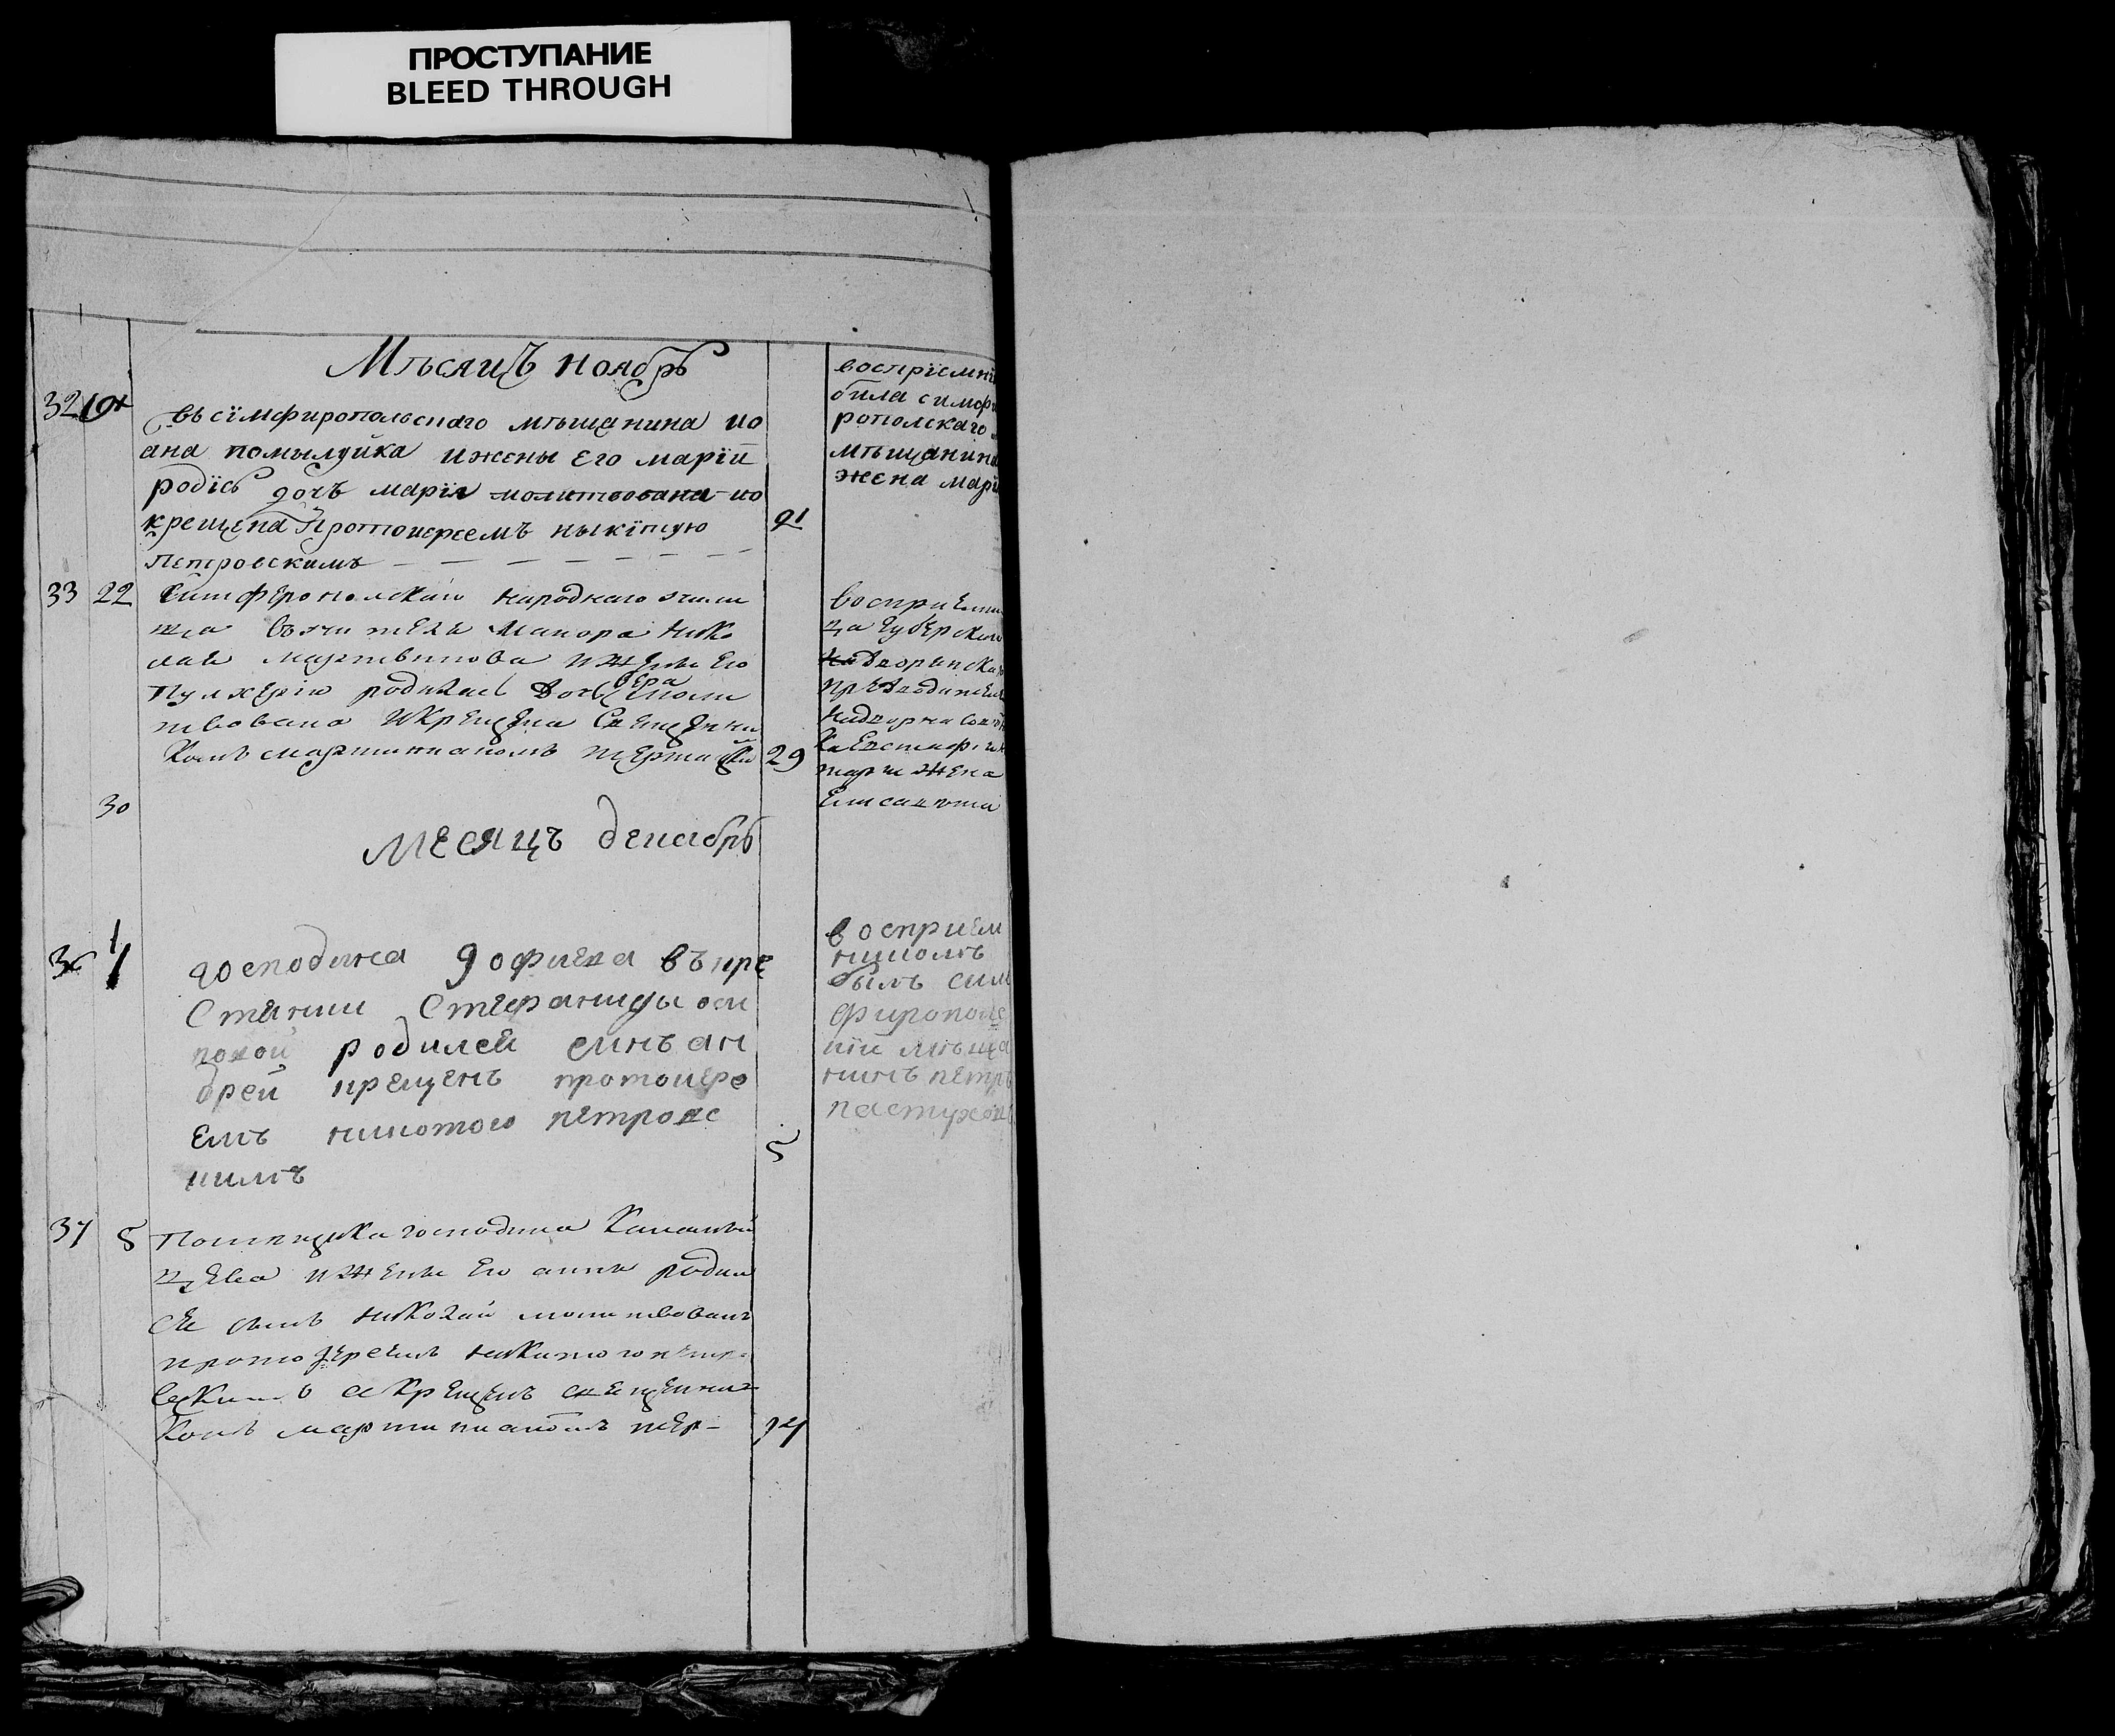 ПРОСТУПАНИЕ
BLEED THROUGH
Мѣсяцъ ноябрь
32 19
въ сїмфиропольскаго мѣщанина ио
ана помылуйка и жены его марїи
родїсь дочь марїя молитвована ио
крещена Протоиереемъ ныкїтую
Петровскимъ
21
воспрїемни
била симфи
рополскаго
мѣщанина
жена марї
33 22
Симферополскаго народнаго учили
ща маиора Нико
лая мартвинова и жены Его
Пулхерїю родилась дочь Вера моли
твована и крещена Священни
комъ мартиниапомъ
29
восприемни
ца губерскаго
дворинска
предводителя
надворна совѣтни
ка Евстафи
жена
Елисавета
30
месяцъ декабрь
36 1
господина дофиева въ кре
стянки Стефаниды оси
повой родилей синъ ан
дрей крещенъ протоиере
емъ никитою петровс
кимъ
5
восприем
никомъ
былъ сим
фирополс
кїи мѣща
нинъ петръ
пастухов
37 5
Помещика господина
цева и жены Его анны родил
ся сынъ Николай молитвованъ
протоїереемъ Никитою петро
вскимъ а крещенъ священни
комъ мартинианомъ тер-
14